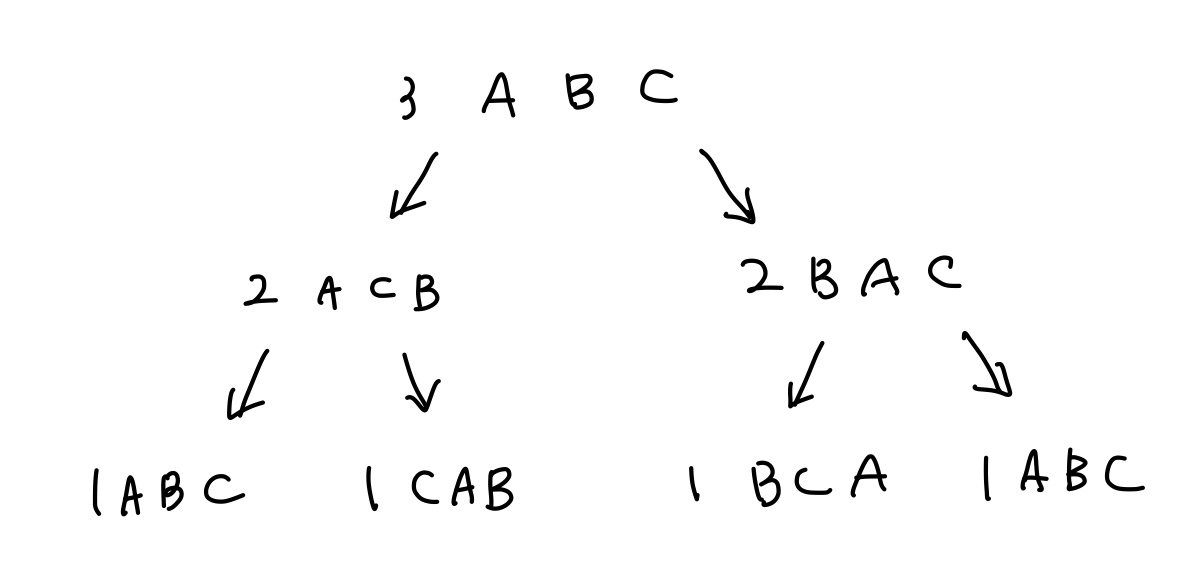 3 A B C
2 A C B 2 B A C
1 A B C 1 C A B 1 B C A 1 A B C